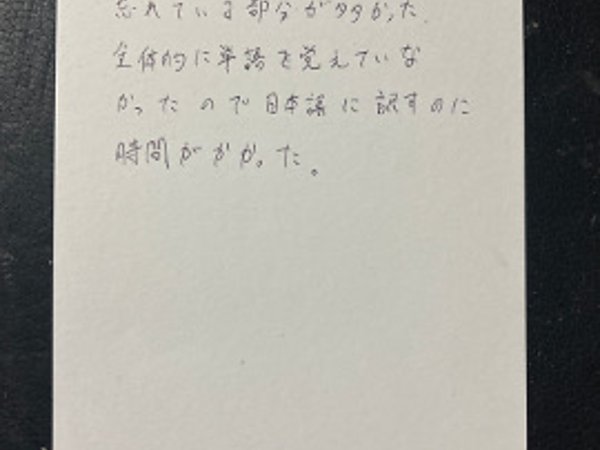 忘れている部分が多かった
全体的に単語を覚えていな
かったので日本語に訳すのに
時間がかかった。